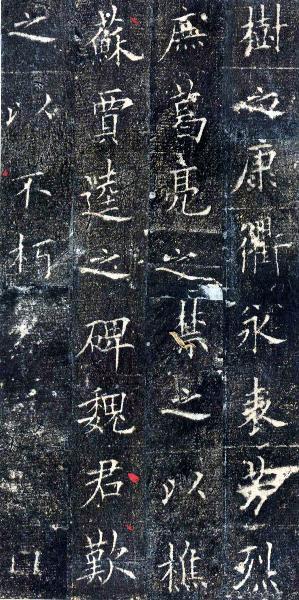 樹之康衢永表芳烈
庶葛亮之禁之以樵
蘇賈逵之碑魏君歎
之以不朽